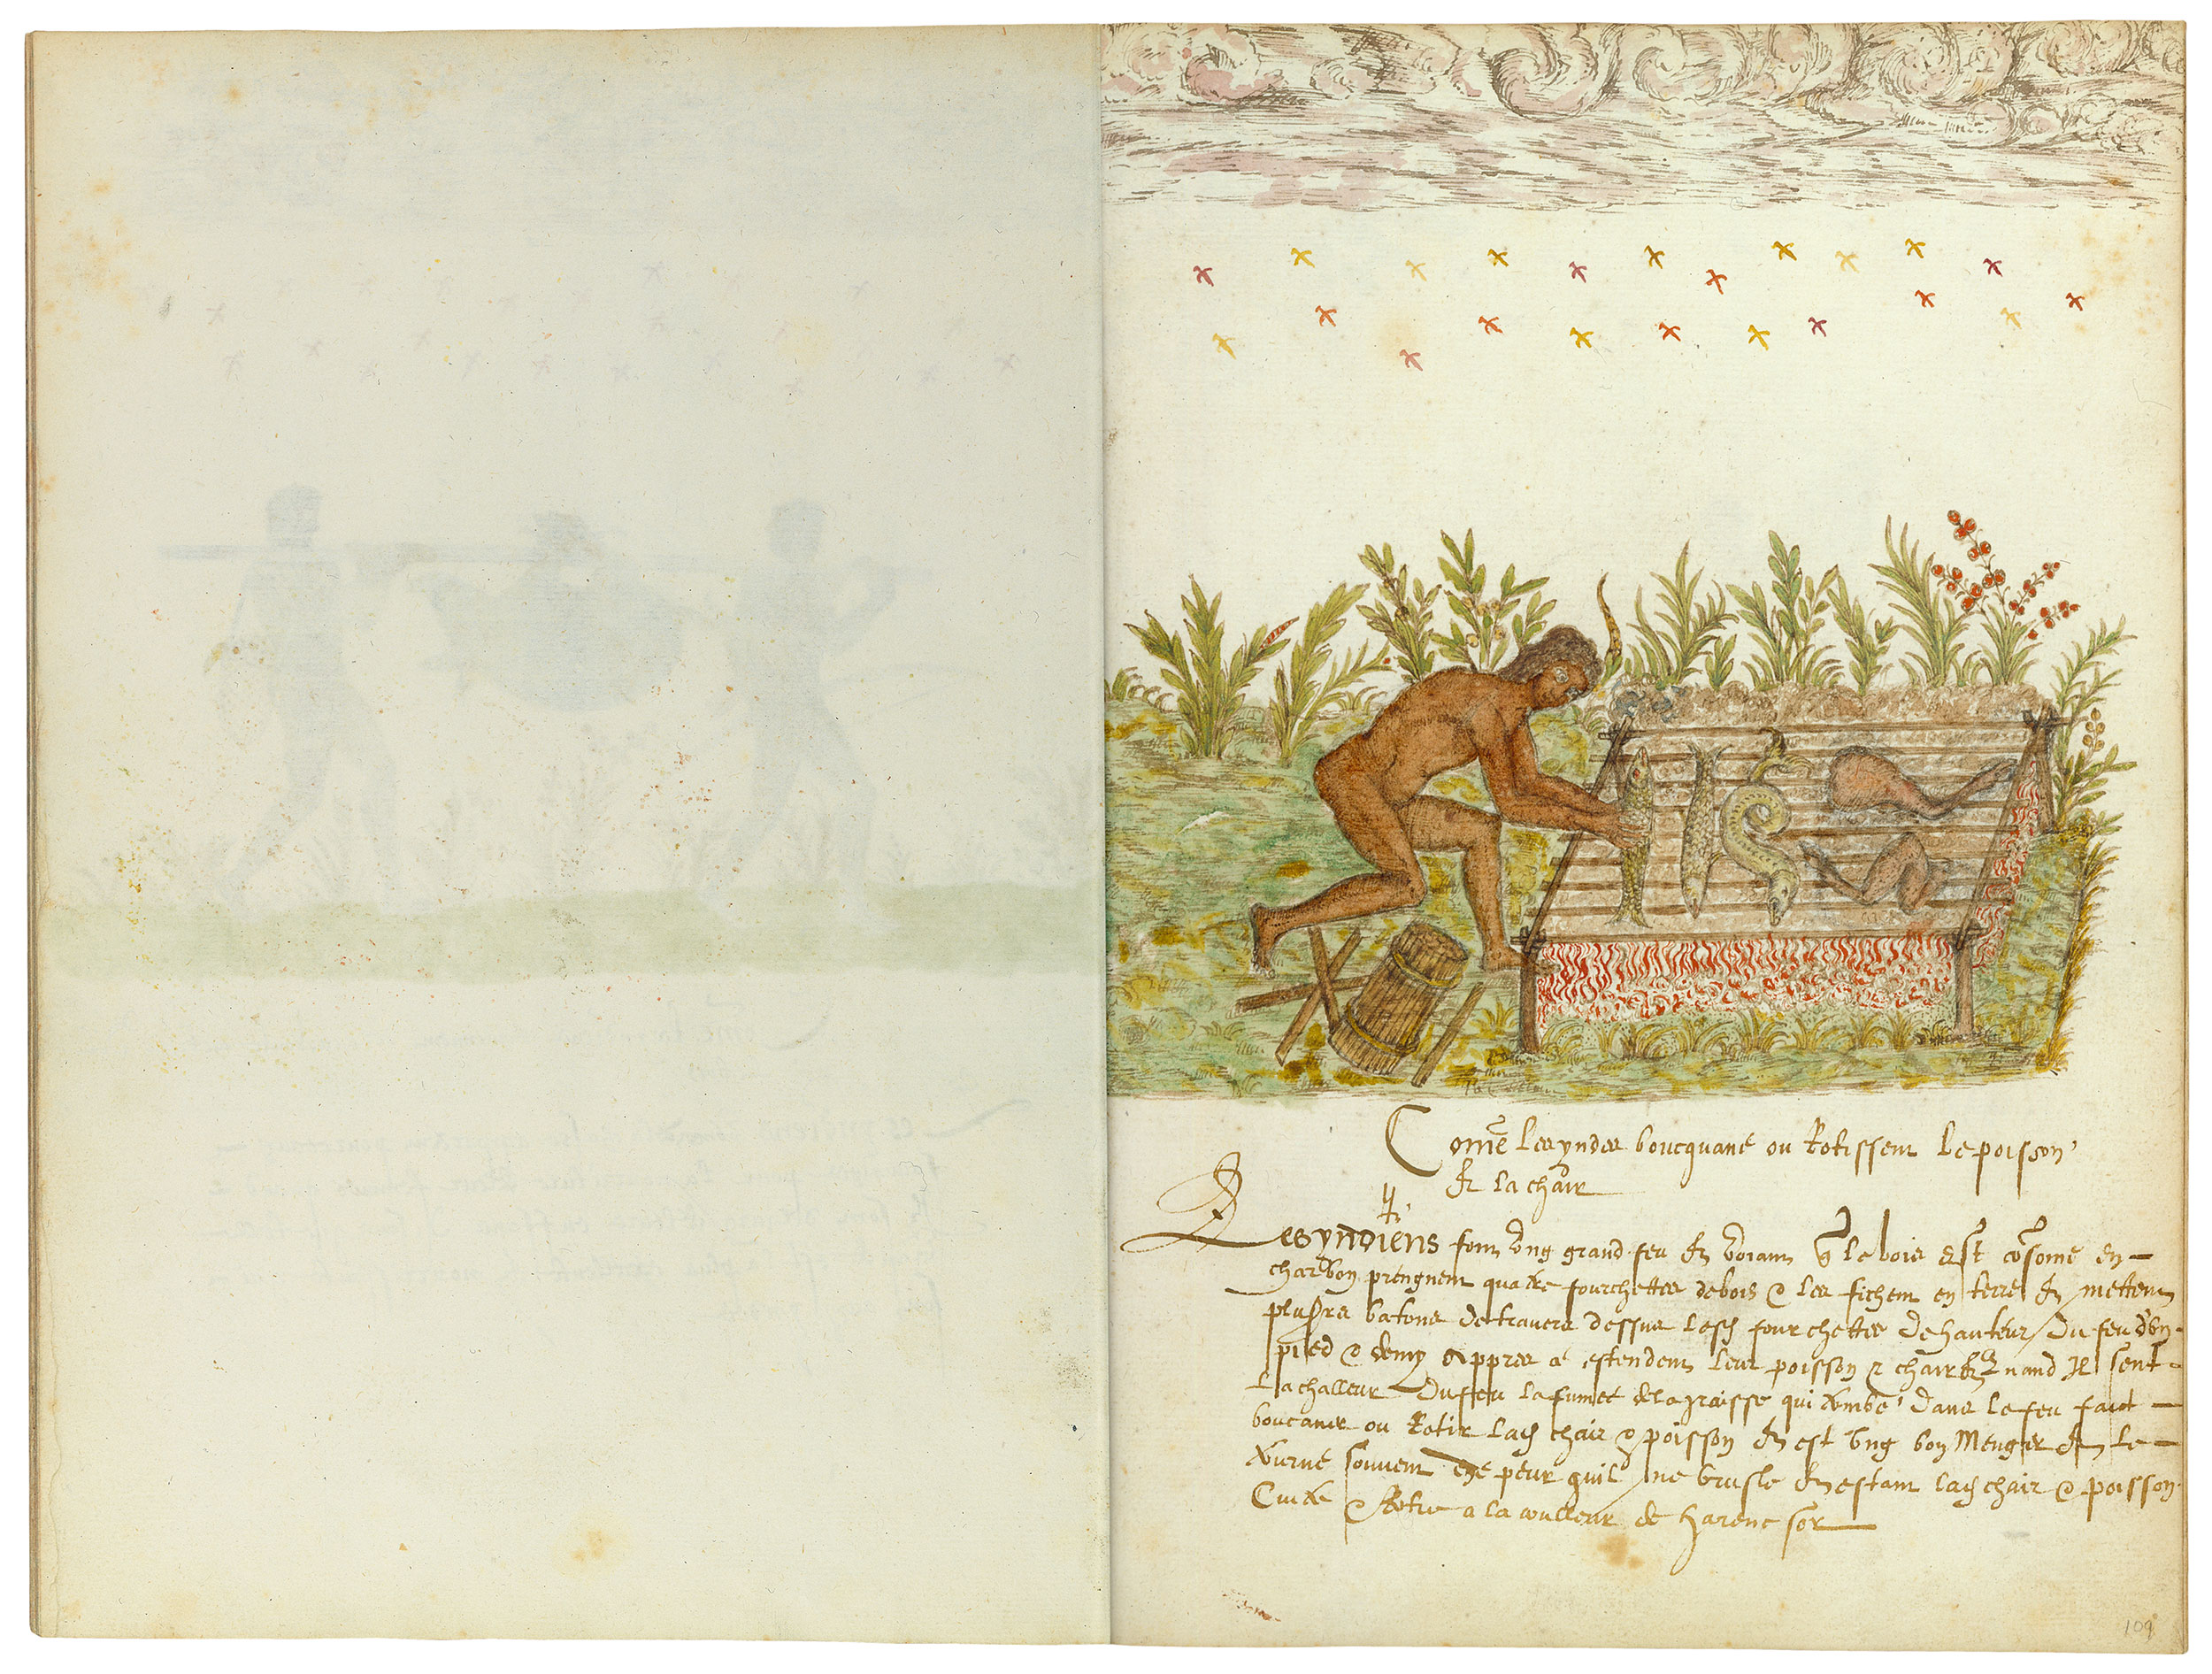 Come les yndes boucquane ou Rotissent le poisson
Et la chair
Les yndiens font ung grand feu Et voiant q̃ le bois est cõsome en
charbon prengnent quatre fourchettes de bois & les fichent en terre Et mettent
plusrs batons de travers dessus lesd fourchettes de hauteur du feu d'un
pied & demy appres a estendent leur poisson & chair Et quand Il sent
La challeur du feu la fumee de la graisse qui tombe dans le feu faict
boucaner ou Rotir lad chair & poisson Et est ung bon Menger Et le
tourne souvent peur quil ne brusle Et estant lad chair & poisson
Cuite & Rotie a la coulleur de harenc sor
109